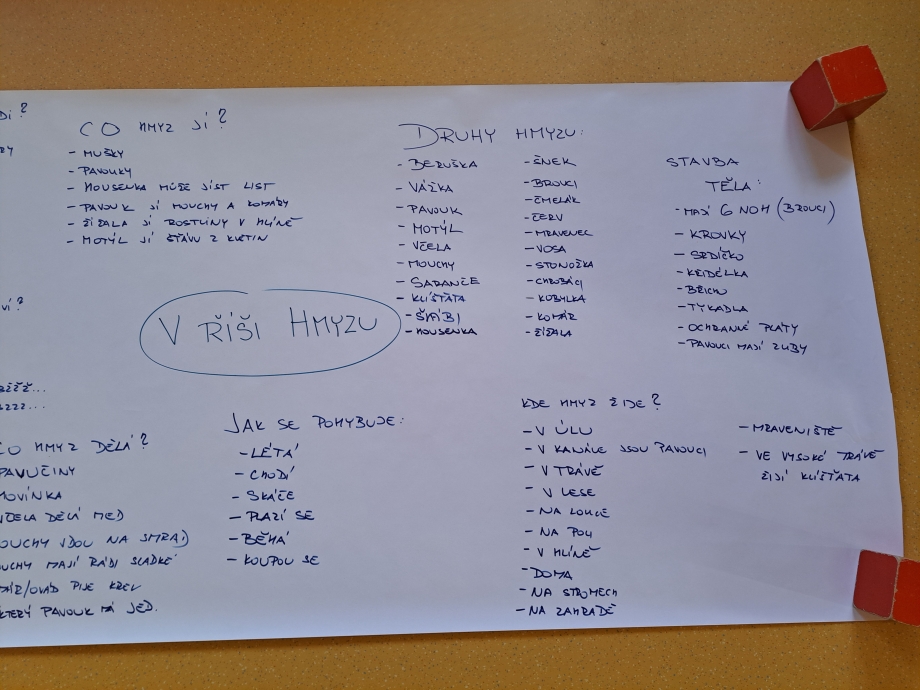 CO HMYZ JÍ?
- MUŠKY
- PAVOUKY
- HOUSENKA MŮŽE JÍST LIST
- PAVOUK JÍ MOUCHY A KOMÁRY
- ŽÍŽALA JÍ ROSTLINY V HLÍNĚ
- MOTÝL JÍ ŠŤÁVU Z KVĚTIN
DRUHY HMYZU:
- BERUŠKA
- VÁŽKA
- PAVOUK
- MOTÝL
- VČELA
- MOUCHY
- SARANČE
- KLÍŠŤATA
- ŠVÁBI
- HOUSENKA
- ŠNEK
- BROUCI
- ČMELÁK
- ČERV
- MRAVENEC
- VOSA
- STONOŽKA
- CHROBÁCI
- KOBYLKA
- KOMÁR
- ŽÍŽALA
STAVBA
TĚLA:
- MAJÍ 6 NOH (BROUCI)
- KROVKY
- SRDÍČKO
- KŘIDÉLKA
- BŘICHO
- TYKADLA
- OCHRANÉ PLÁTY
- PAVOUCI MAJÍ ZUBY
V ŘÍŠI HMYZU
CO HMYZ DĚLÁ?
PAVUČINY
VČELA DĚLÁ MED
MOUCHY JDOU NA SMRAD
MOUCHY MAJÍ RÁDI SLADKÉ
KOMÁR/OVÁD PIJE KREV
KTERÝ PAVOUK MÁ JED.
JAK SE POHYBUJE:
- LÉTÁ
- CHODÍ
- SKÁČE
- PLAZÍ SE
- BĚHÁ
- KOUPOU SE
KDE HMYZ ŽIJE?
- V ÚLU
- V KANÁLE JSOU PAVOUCI
- V TRÁVĚ
- V LESE
- NA LOUCE
- NA POLI
- V HLÍNĚ
- DOMA
- NA STROMECH
- NA ZAHRADĚ
- MRAVENIŠTĚ
- VE VYSOKÉ TRÁVĚ
ŽIJÍ KLÍŠŤATA